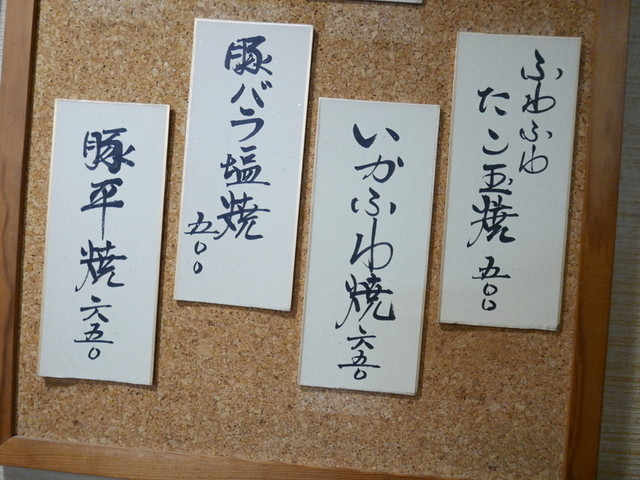 ふわふわ
たこ玉焼 五〇〇
いかふわ焼 六五〇
豚バラ塩焼
五〇〇
豚平焼 六五〇